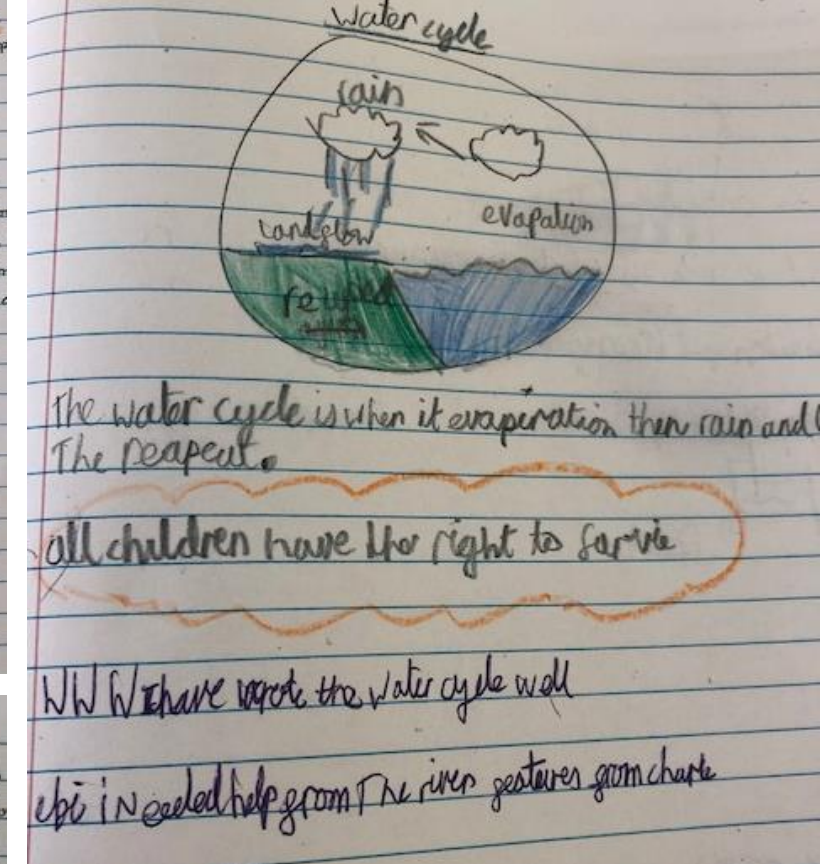 Water cycle
rain
evapation
landflow
The water cycle is when it evaperation then rain and
The reapeat.
all children have the right to sarvie
WWW I have wrote the water cycle well
ebi i Needed help from The river features from